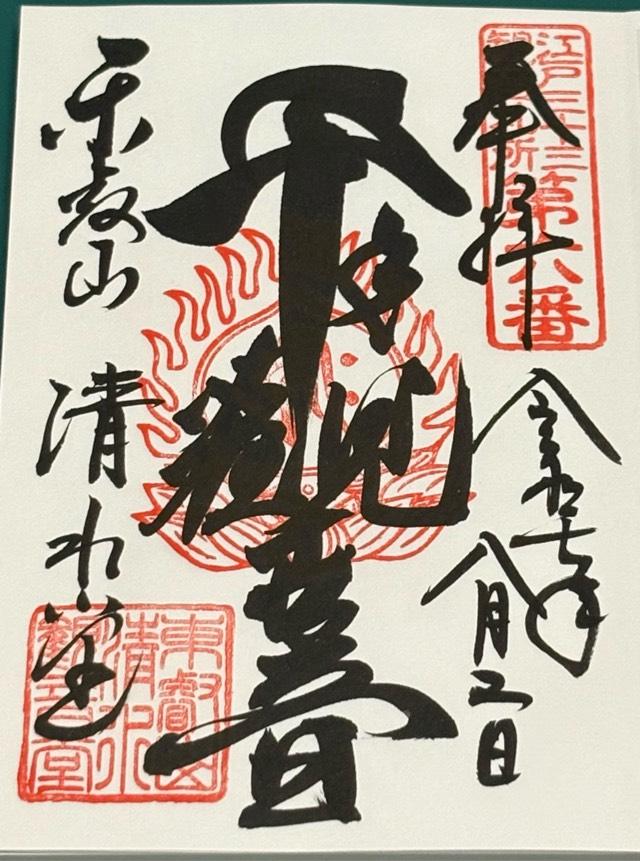 江戸三十三
観音札所
第六番
奉拝
令和七年
八月二日
千手
觀音
東叡山
清水堂
東叡山
清水
觀音堂